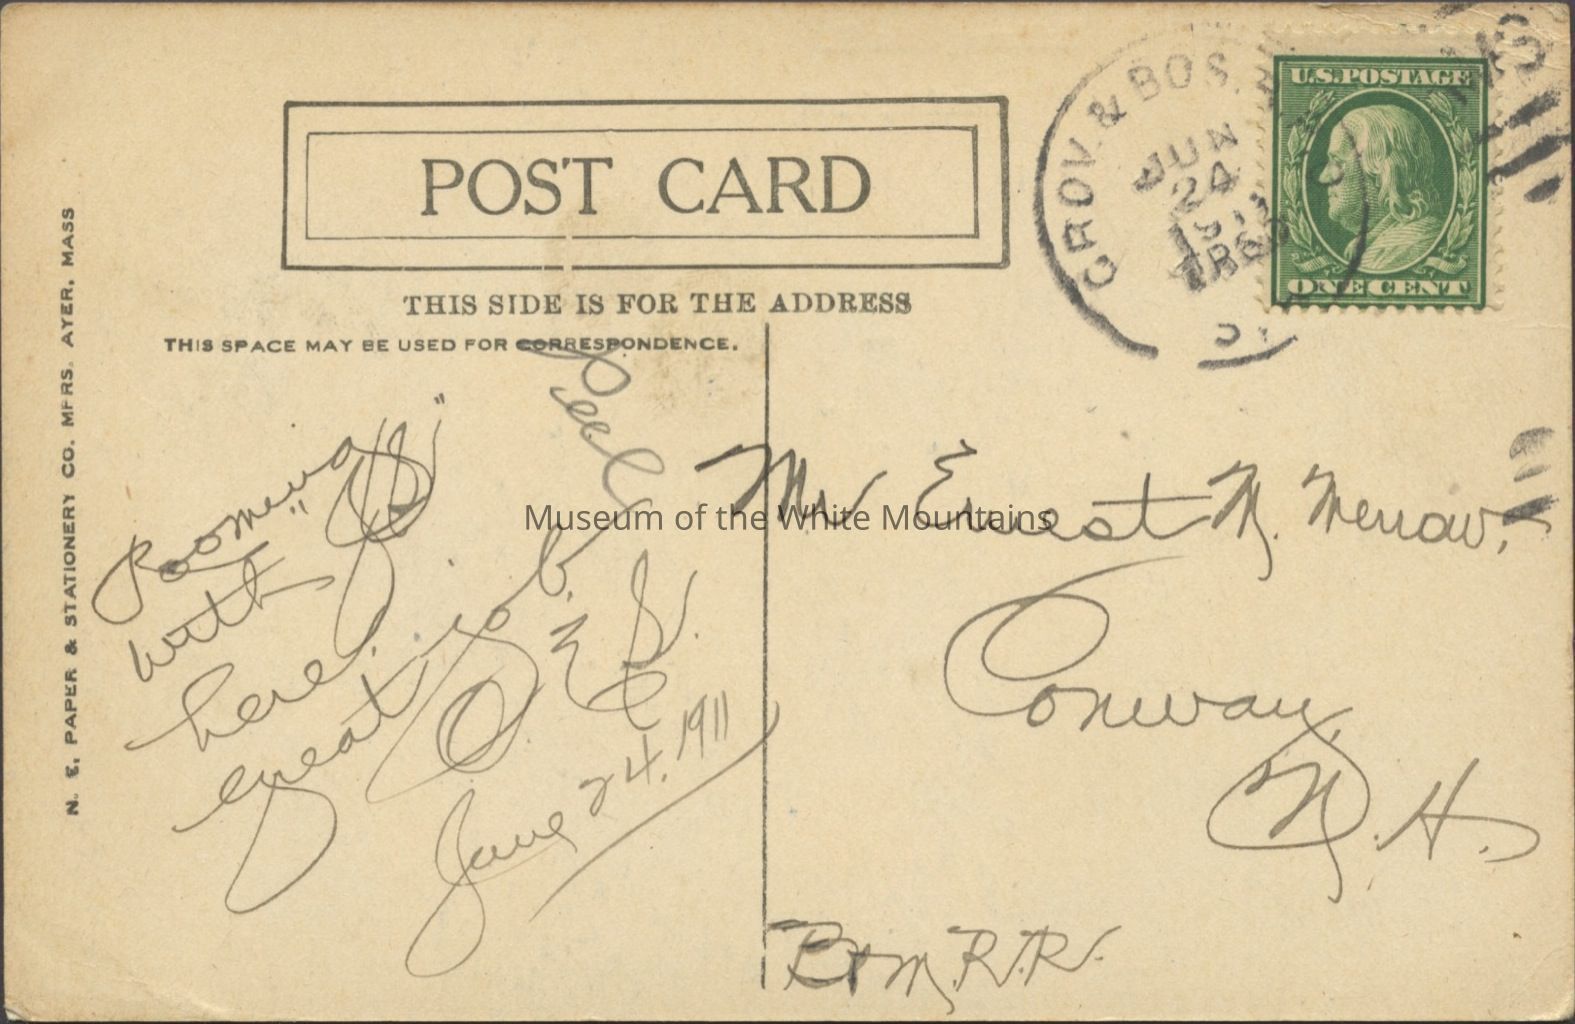 POST CARD
THIS SIDE IS FOR THE ADDRESS
THIS SPACE MAY BE USED FOR CORRESPONDENCE.
N. E. PAPER & STATIONERY CO. MFRS. AYER, MASS
GROV. & BOS.
JUN
24
1911
U.S. POSTAGE
ONE CENT
Rooming
with
here.
great job.
June 24, 1911
Mr Ernest M. Merrow.
Conway
N. H.
B & M. R. R.
Museum of the White Mountains